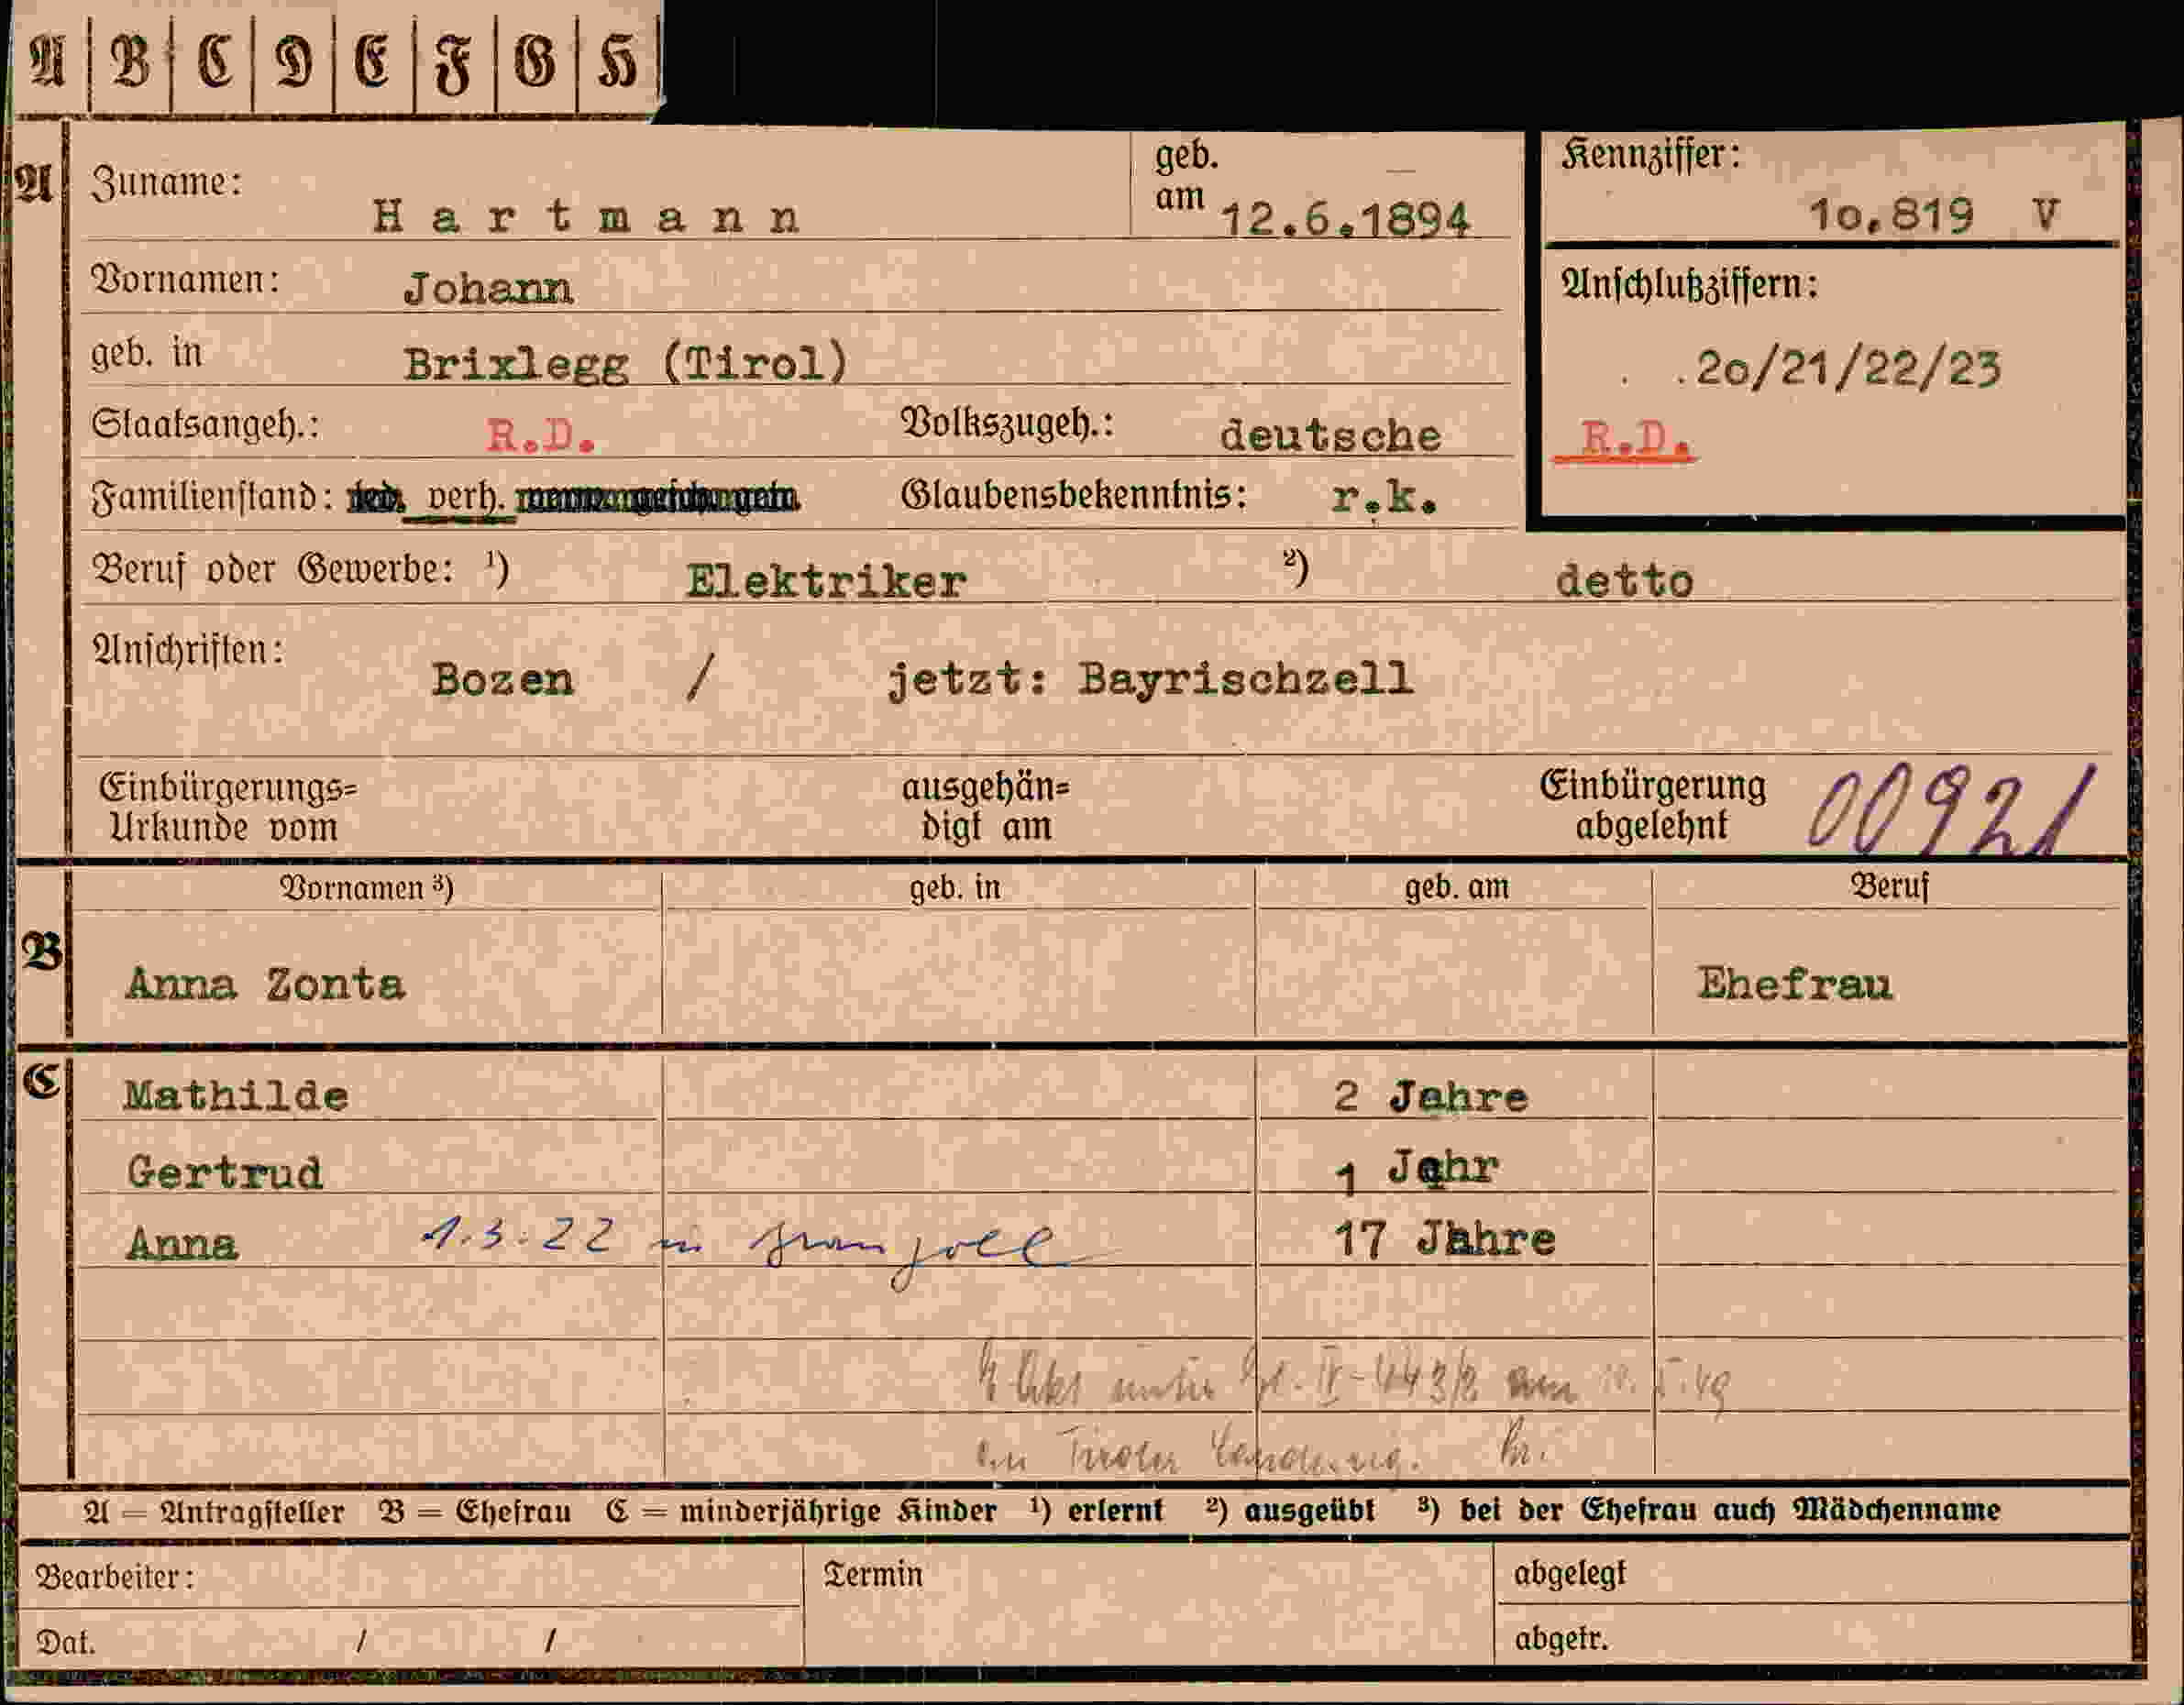 A B C D E F G H
A Zuname: Hartmann geb. am 12.6.1894
Kennziffer: 10.819 V
Vornamen: Johann
Anschlußziffern:
geb. in Brixlegg (Tirol)
20/21/22/23
Staatsangeh.: R.D. Volkszugeh.: deutsche
R.D.
Familienstand: verh. Glaubensbekenntnis: r.k.
Beruf oder Gewerbe: ¹) Elektriker ²) detto
Anschriften: Bozen / jetzt: Bayrischzell
Einbürgerungs= ausgehän= Einbürgerung 00921
Urkunde vom digt am abgelehnt
Vornamen ³) geb. in geb. am Beruf
B Anna Zonta Ehefrau
C Mathilde 2 Jahre
Gertrud 1 Jahr
Anna 1.3.22 in 17 Jahre
Akt unter IV-443/2
Tiroler
A = Antragsteller B = Ehefrau C = minderjährige Kinder ¹) erlernt ²) ausgeübt ³) bei der Ehefrau auch Mädchenname
Bearbeiter: Termin abgelegt
Dat. / / abgetr.